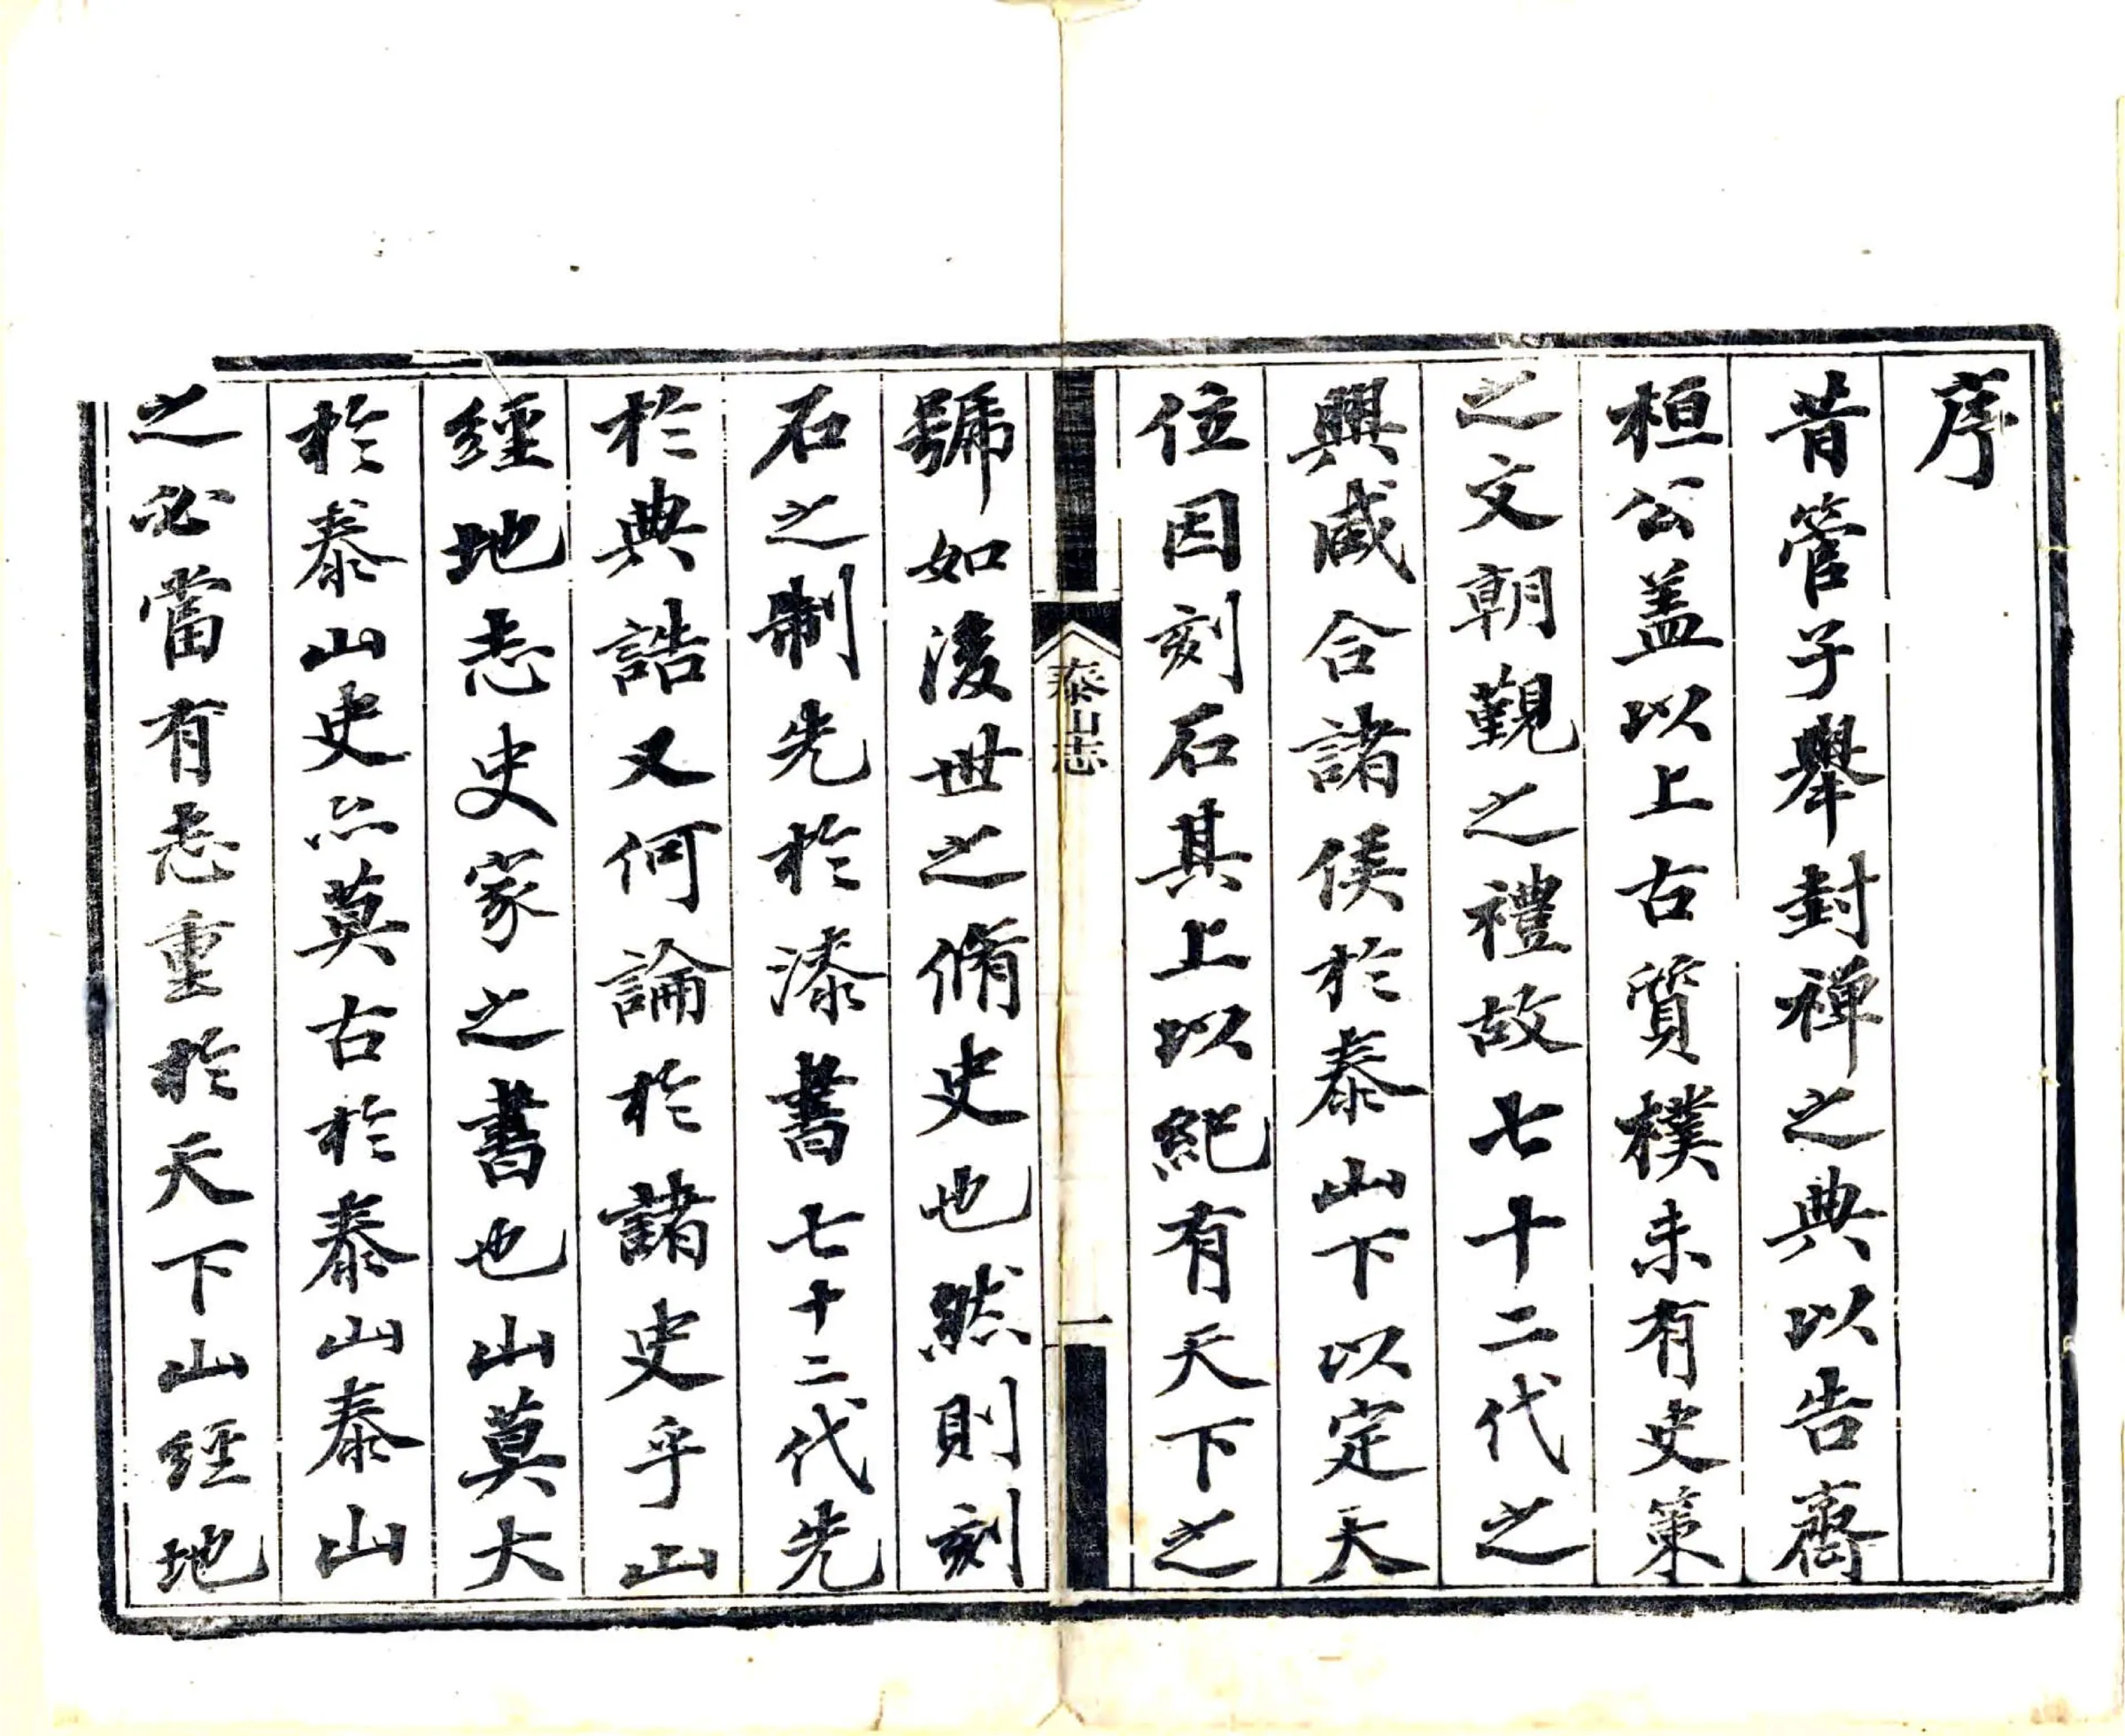 序
昔管子舉封禅之典以告齋
桓公盖以上古質樸未有史策
之文朝覲之禮故七十二代之
興咸合諸侯於泰山下以定天
位因刻石其上以紀有天下之
泰山志
一
號如後世之脩史也然則刻
石之制先於漆書七十二代先
於典誥又何論於諸史乎山
經地志史家之書也山莫大
於泰山史亦莫古於泰山泰山
之必當有志重於天下山經地